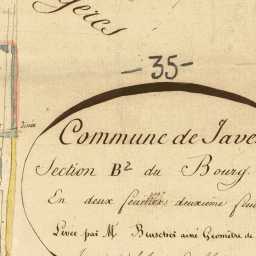 gères
-35-
Commune de Jave
Section B² du Bourg.
En deux feuilles deuxième feui
Levée par Mr Beuscher ainé Géomètre de